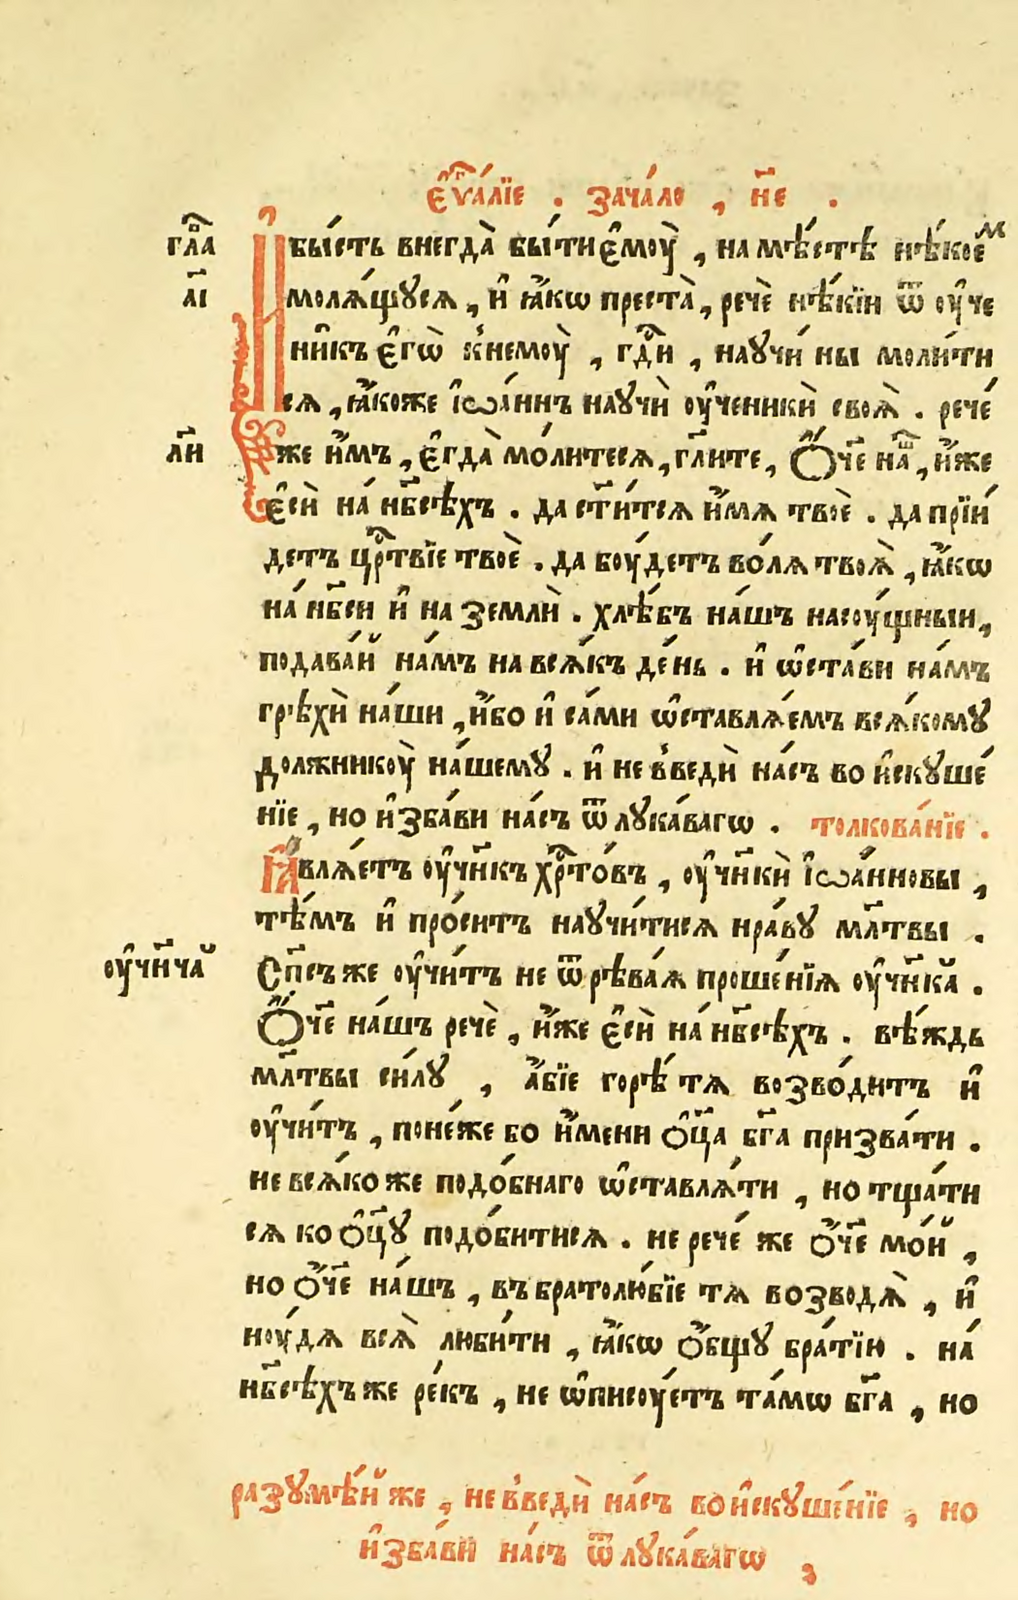 є҆ѵⷢ҇алїе . зача́ло , н҃е .
гл҃а
И бы́сть внегда̀ бы́ти є҆моу̀ , на мѣ́стѣ нѣ́коеⷨ
а҃і
молѧ́щꙋсѧ , и҆ ꙗ҆́кѡ преста̀ , речѐ нѣ́кїи ѿ оу҆че
ни̑къ є҆гѡ̀ к̾немоу̀ , гⷭ҇ди , наꙋчи́ ны моли́ти
сѧ , ꙗ҆́коже і҆ѡа́ннъ наꙋчѝ оу҆ченикѝ своѧ̀ . рече́
л҃и
же и҆̀мъ , є҆гда̀ мо́литесѧ , гл҃ите , Ѻ҆́ч҃е наⷲ҇ , и҆́же
є҆сѝ на́ нб҃сѣхъ . да ст҃и́тсѧ и҆́мѧ твоѐ . да прїи́
детъ црⷭ҇твїе твоѐ . да боу́детъ во́лѧ твоѧ̀ , ꙗ҆́кѡ
на́ нб҃си и҆ на землѝ . хлѣ́бъ на́шъ насоу́щныи ,
подава́й на́мъ на всѧ́къ де́нь . и҆ ѡ҆ста́ви на́мъ
грѣхѝ на́ши , и҆́бо и҆ са́ми ѡ҆ставлѧ́емъ всѧ́комꙋ
должникоу̀ на́шемꙋ . и҆ не в̾ведѝ на́съ во и҆скꙋше́
нїе , но и҆зба́ви на́съ ѿ лꙋка́вагѡ . толкова́нїе .
Ꙗ҆влѧ́етъ оу҆чн҃къ хрⷭ҇то́въ , оу҆чн҃кѝ і҆ѡа́нновы ,
тѣ́мъ и҆ про́ситъ наꙋчи́тисѧ нра́вꙋ мл҃твы .
оу҆чи҃чаⷭ҇
Сп҃съ же оу҆чи́тъ не ѿрѣва́ѧ проше́нїѧ оу҆чн҃ка̀ .
Ѻ҆́ч҃е на́шъ речѐ , и҆́же є҆сѝ на́ нб҃сѣхъ . вѣ́ждь
мл҃твы си́лꙋ , а҆́бїе горѣ́ тѧ возво́дитъ и҆
оу҆чи́тъ , поне́же бо и҆́мени ѻ҆ц҃а бг҃а призва́ти .
не всѧ́ко же подо́бнаго ѡ҆ставлѧ́ти , но тща́ти
сѧ ко ѻ҆ц҃ꙋ подо́битисѧ . не рече́ же ѻ҆́ч҃е мо́й ,
но ѻ҆́ч҃е на́шъ , въ братолю́бїе тѧ возводѧ̀ , и҆
ноу́дѧ всѧ̀ люби́ти , ꙗ҆́кѡ ѻ҆́бщꙋ бра́тїю . на́
нб҃сѣхъ же ре́къ , не ѡ҆писоу́етъ та́мѡ бг҃а , но
разꙋмѣ́й же , не в̾ведѝ на́съ во и҆скꙋше́нїе , но
и҆зба́ви на́съ ѿ лꙋка́вагѡ ,